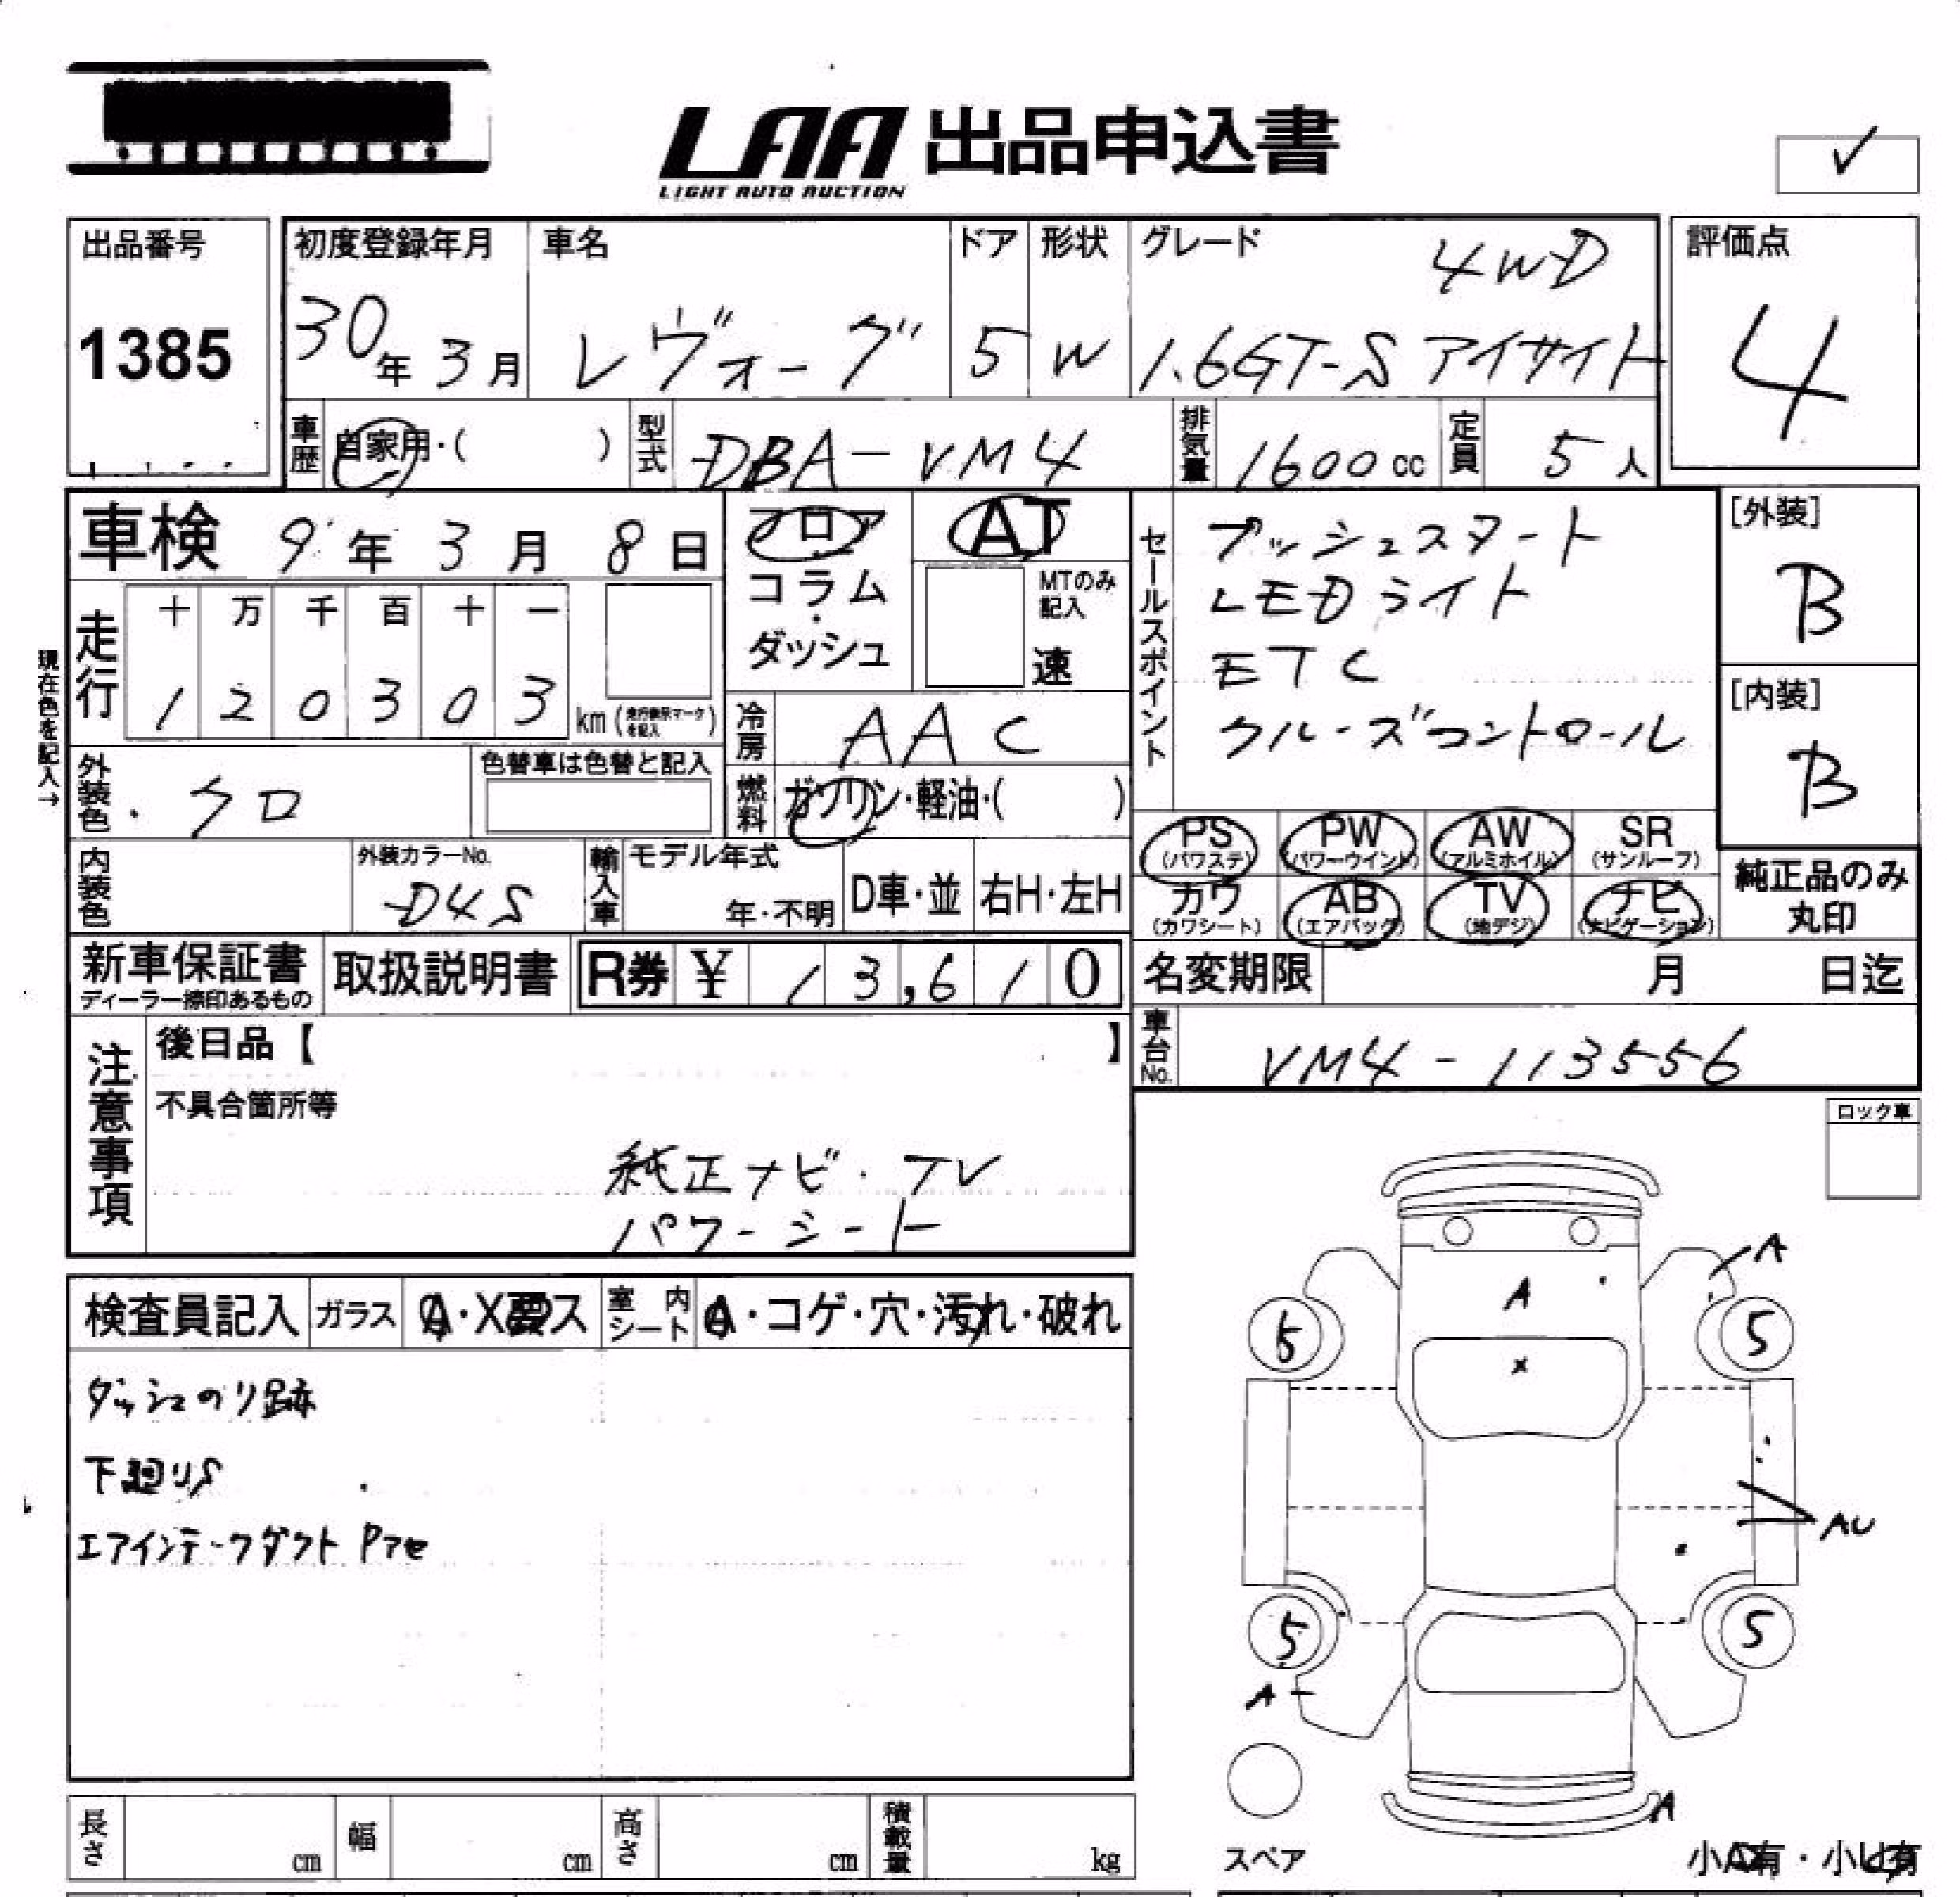 LAA 出品申込書
LIGHT AUTO AUCTION
✓
出品番号
1385
初度登録年月
30年3月
車名
レヴォーグ
ドア
5
形状
W
グレード
4WD
1.6GT-S アイサイト
評価点
4
車歴
自家用・( )
型式
DBA-VM4
排気量
1600cc
定員
5人
車検 9年3月8日
フロア
コラム
・
ダッシュ
AT
MTのみ
記入
速
セールスポイント
プッシュスタート
LEDライト
ETC
クルーズコントロール
[外装]
B
[内装]
B
現在色を記入→
走行
十 万 千 百 十 一
1 2 0 3 0 3 km
冷房
AAC
外装色
クロ
色替車は色替と記入
燃料
ガソリン・軽油・( )
PS (パワステ)
PW (パワーウインド)
AW (アルミホイル)
SR (サンルーフ)
カワ (カワシート)
AB (エアバッグ)
TV (地デジ)
ナビ (ナビゲーション)
純正品のみ
丸印
内装色
外装カラーNo.
D4S
輸入車
モデル年式
年・不明
D車・並
右H・左H
新車保証書
ディーラー捺印あるもの
取扱説明書
R券 ¥ 13,610
名変期限 月 日迄
車台No.
VM4-113556
注意事項
後日品【 】
不具合箇所等
純正ナビ・TV
パワーシート
ロック車
検査員記入
ガラス
A・X要ス
室内シート
A・コゲ・穴・汚れ・破れ
ダッシュのリ跡
下廻りS
エアインテークダクト Pアセ
A
A
x
5
5
AU
5
5
A
A
スペア
小A有・小U有
長さ cm
幅 cm
高さ cm
積載量 kg